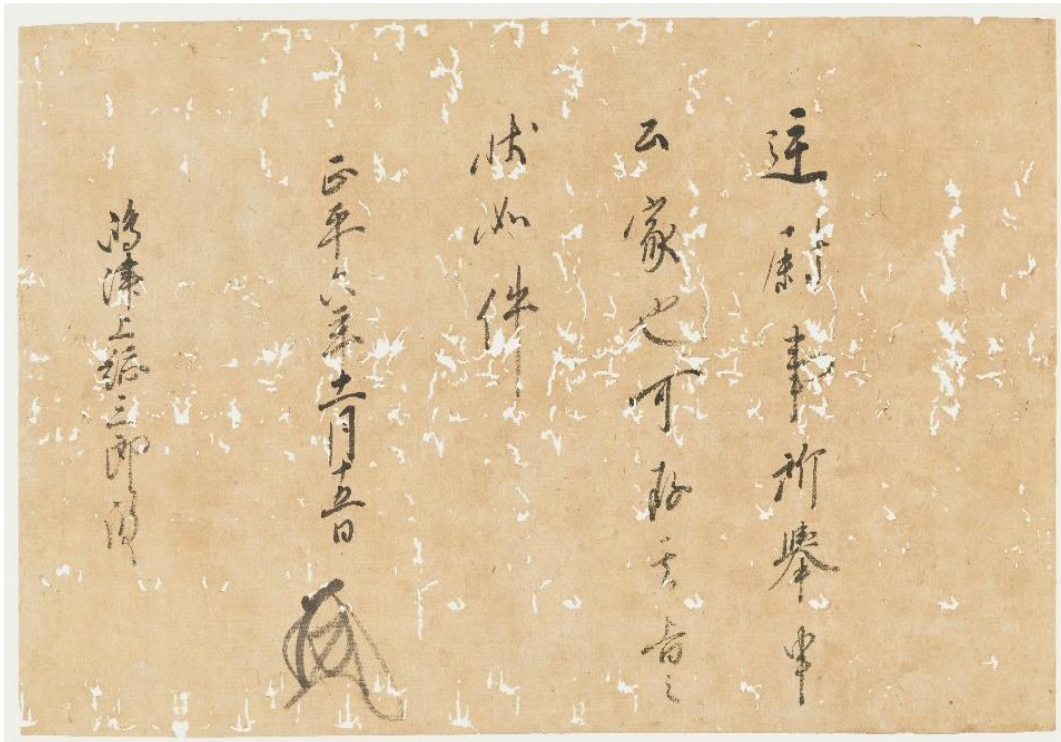 廷尉事所挙申
公家也可存其旨之
状如件
正平六年十二月十五日
嶋津上総三郎殿